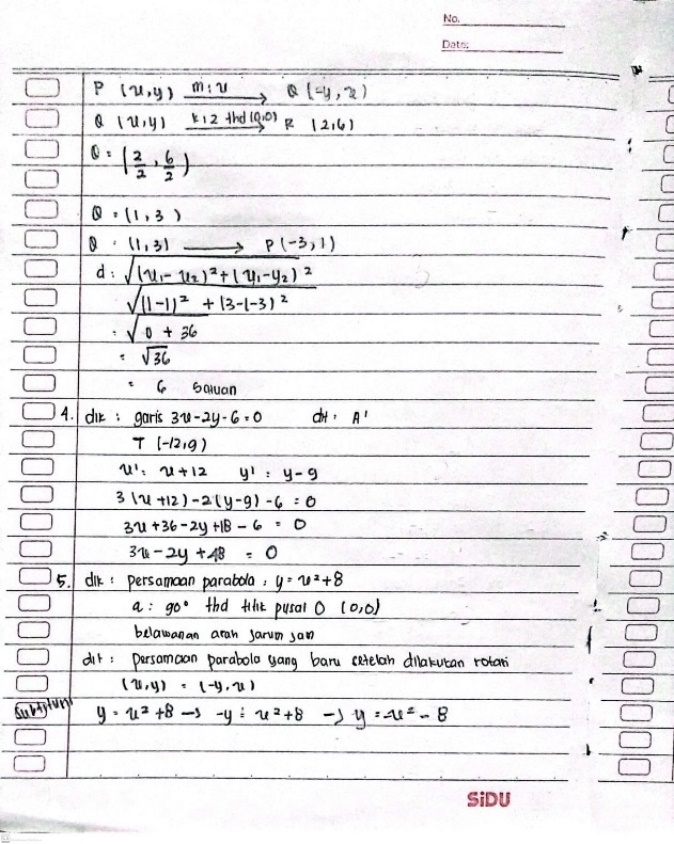 No.
Date:
P (x,y) m:x → Q (-y,x)
Q (x,y) k:2 thd (0,0) → R (2,6)
Q = (2/2, 6/2)
Q = (1,3)
Q = (1,3) → P (-3,1)
d: √(x₁-x₂)²+(y₁-y₂)²
√(1-1)² + (3-(-3)²
= √0 + 36
= √36
= 6 satuan
4. dik : garis 3x-2y-6=0 dit : A'
T (-12,9)
x' : x+12 y' : y-9
3(x+12)-2(y-9)-6 = 0
3x+36-2y+18-6 = 0
3x-2y+48 = 0
5. dik : persamaan parabola : y = x²+8
a : 90° thd titik pusat O (0,0)
belawanan arah jarum jam
dit : persamaan parabola yang baru setelah dilakukan rotasi
(x,y) = (-y,x)
Subtitusi y = x²+8 → -y = x²+8 → y = -x²-8
SiDU